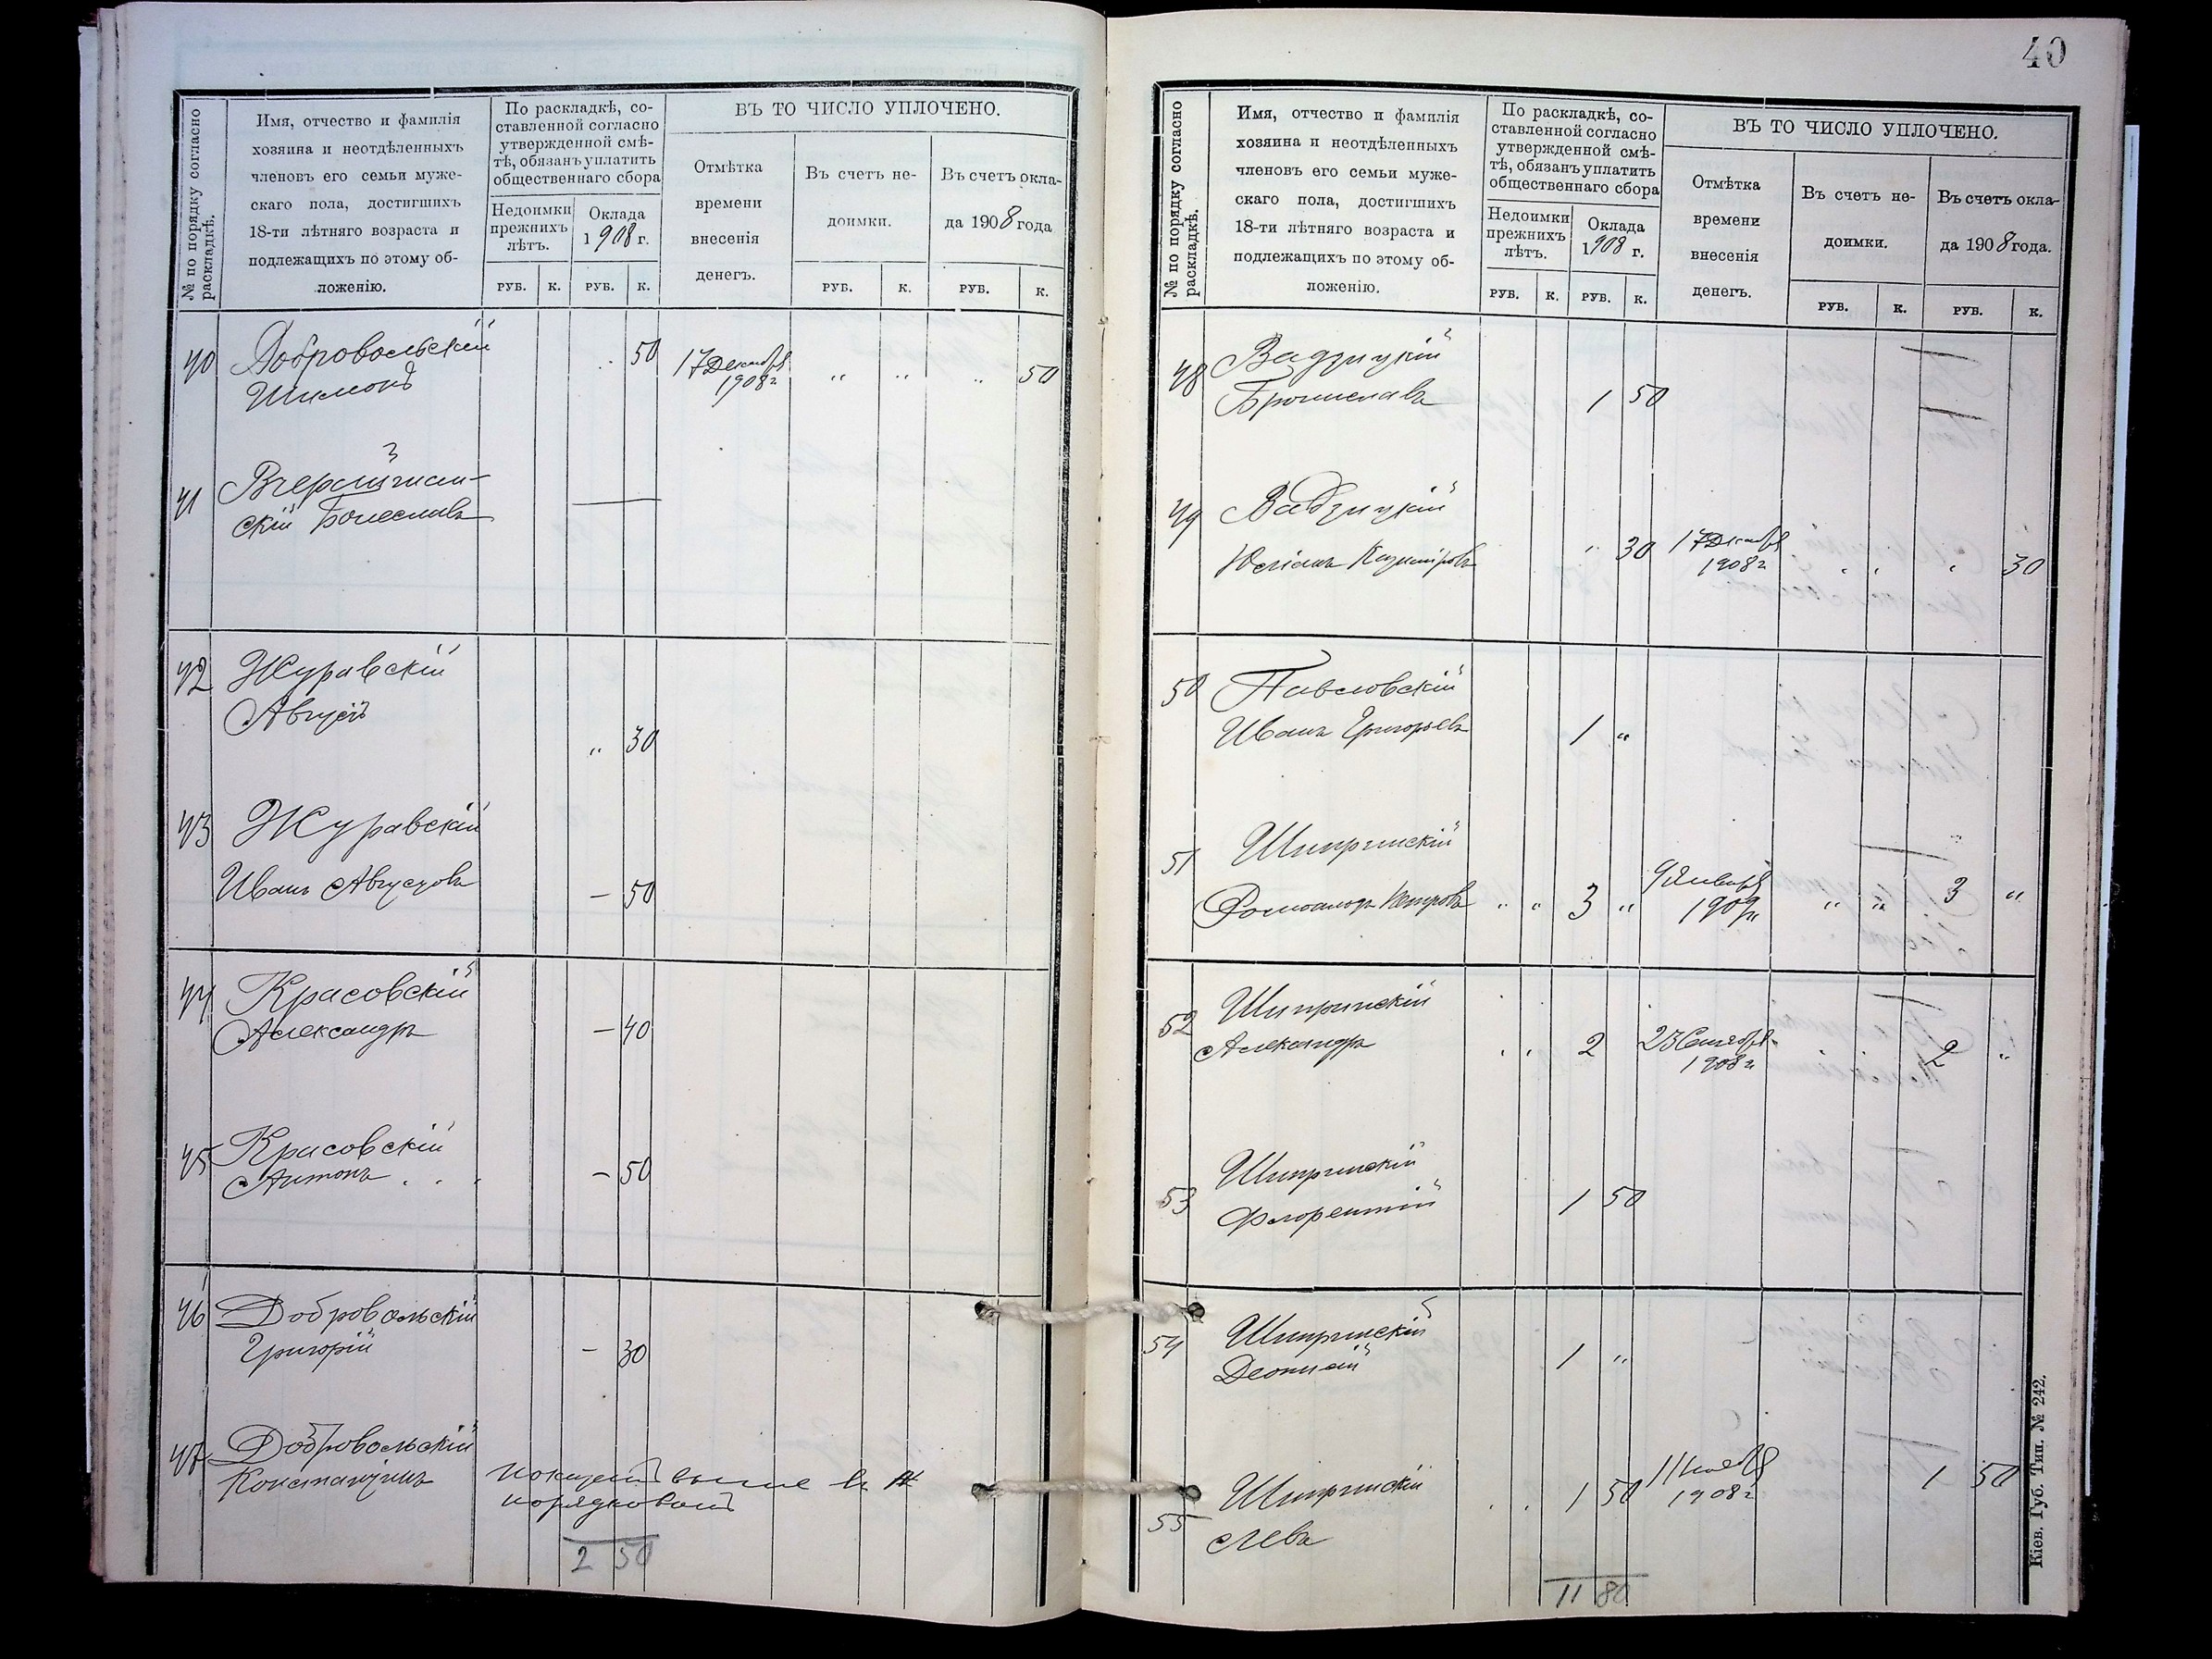 40
№ по порядку согласно
раскладкѣ.
Имя, отчество и фамилія
хозяина и неотдѣленныхъ
членовъ его семьи муже-
скаго пола, достигшихъ
18-ти лѣтняго возраста и
подлежащихъ по этому об-
ложенію.
По раскладкѣ, со-
ставленной согласно
утвержденной смѣ-
тѣ, обязанъ уплатить
общественнаго сбора
Недоимки
прежнихъ
лѣтъ.
Оклада
1908 г.
ВЪ ТО ЧИСЛО УПЛОЧЕНО.
Отмѣтка
времени
внесенія
денегъ.
Въ счетъ не-
доимки.
Въ счетъ окла-
да 1908 года
РУБ. К. РУБ. К. РУБ. К. РУБ. К.
40 Добровольскій . 50 17 Декабря „ „ „ 50
Шимонъ 1908 г
41
скій Болеславъ —
42 Журавскій
Августъ „ 30
43 Журавскій
Иванъ Августовъ — 50
44 Красовскій
Александръ — 40
45 Красовскій
Антонъ — 50
46 Добровольскій
Григорій — 30
47 Добровольскій
Константинъ показанъ выше въ №
порядковомъ
2 50
№ по порядку согласно
раскладкѣ.
Имя, отчество и фамилія
хозяина и неотдѣленныхъ
членовъ его семьи муже-
скаго пола, достигшихъ
18-ти лѣтняго возраста и
подлежащихъ по этому об-
ложенію.
По раскладкѣ, со-
ставленной согласно
утвержденной смѣ-
тѣ, обязанъ уплатить
общественнаго сбора
Недоимки
прежнихъ
лѣтъ.
Оклада
1908 г.
ВЪ ТО ЧИСЛО УПЛОЧЕНО.
Отмѣтка
времени
внесенія
денегъ.
Въ счетъ не-
доимки.
Въ счетъ окла-
да 1908 года.
РУБ. К. РУБ. К. РУБ. К. РУБ. К.
48 Вадзицкій
Брониславъ 1 50
49 Вадзицкій
Юліанъ Казиміровъ „ 30 17 Декабря „ „ „ 30
1908 г
50 Павловскій
Иванъ Григорьевъ 1 „
51 Шипринскій
Ромоальдъ Петровъ „ „ 3 „ 9 Января „ „ 3 „
1909 г
52 Шипринскій
Александръ „ „ 2 23 Сентября 2 „
1908 г
53 Шипринскій
Флорентій 1 50
54 Шипринскій
1 „
55 Шипринскій „ „ 1 50 11 Ноября 1 50
Левъ 1908 г
11 80
Кіев. Губ. Тип. № 242.